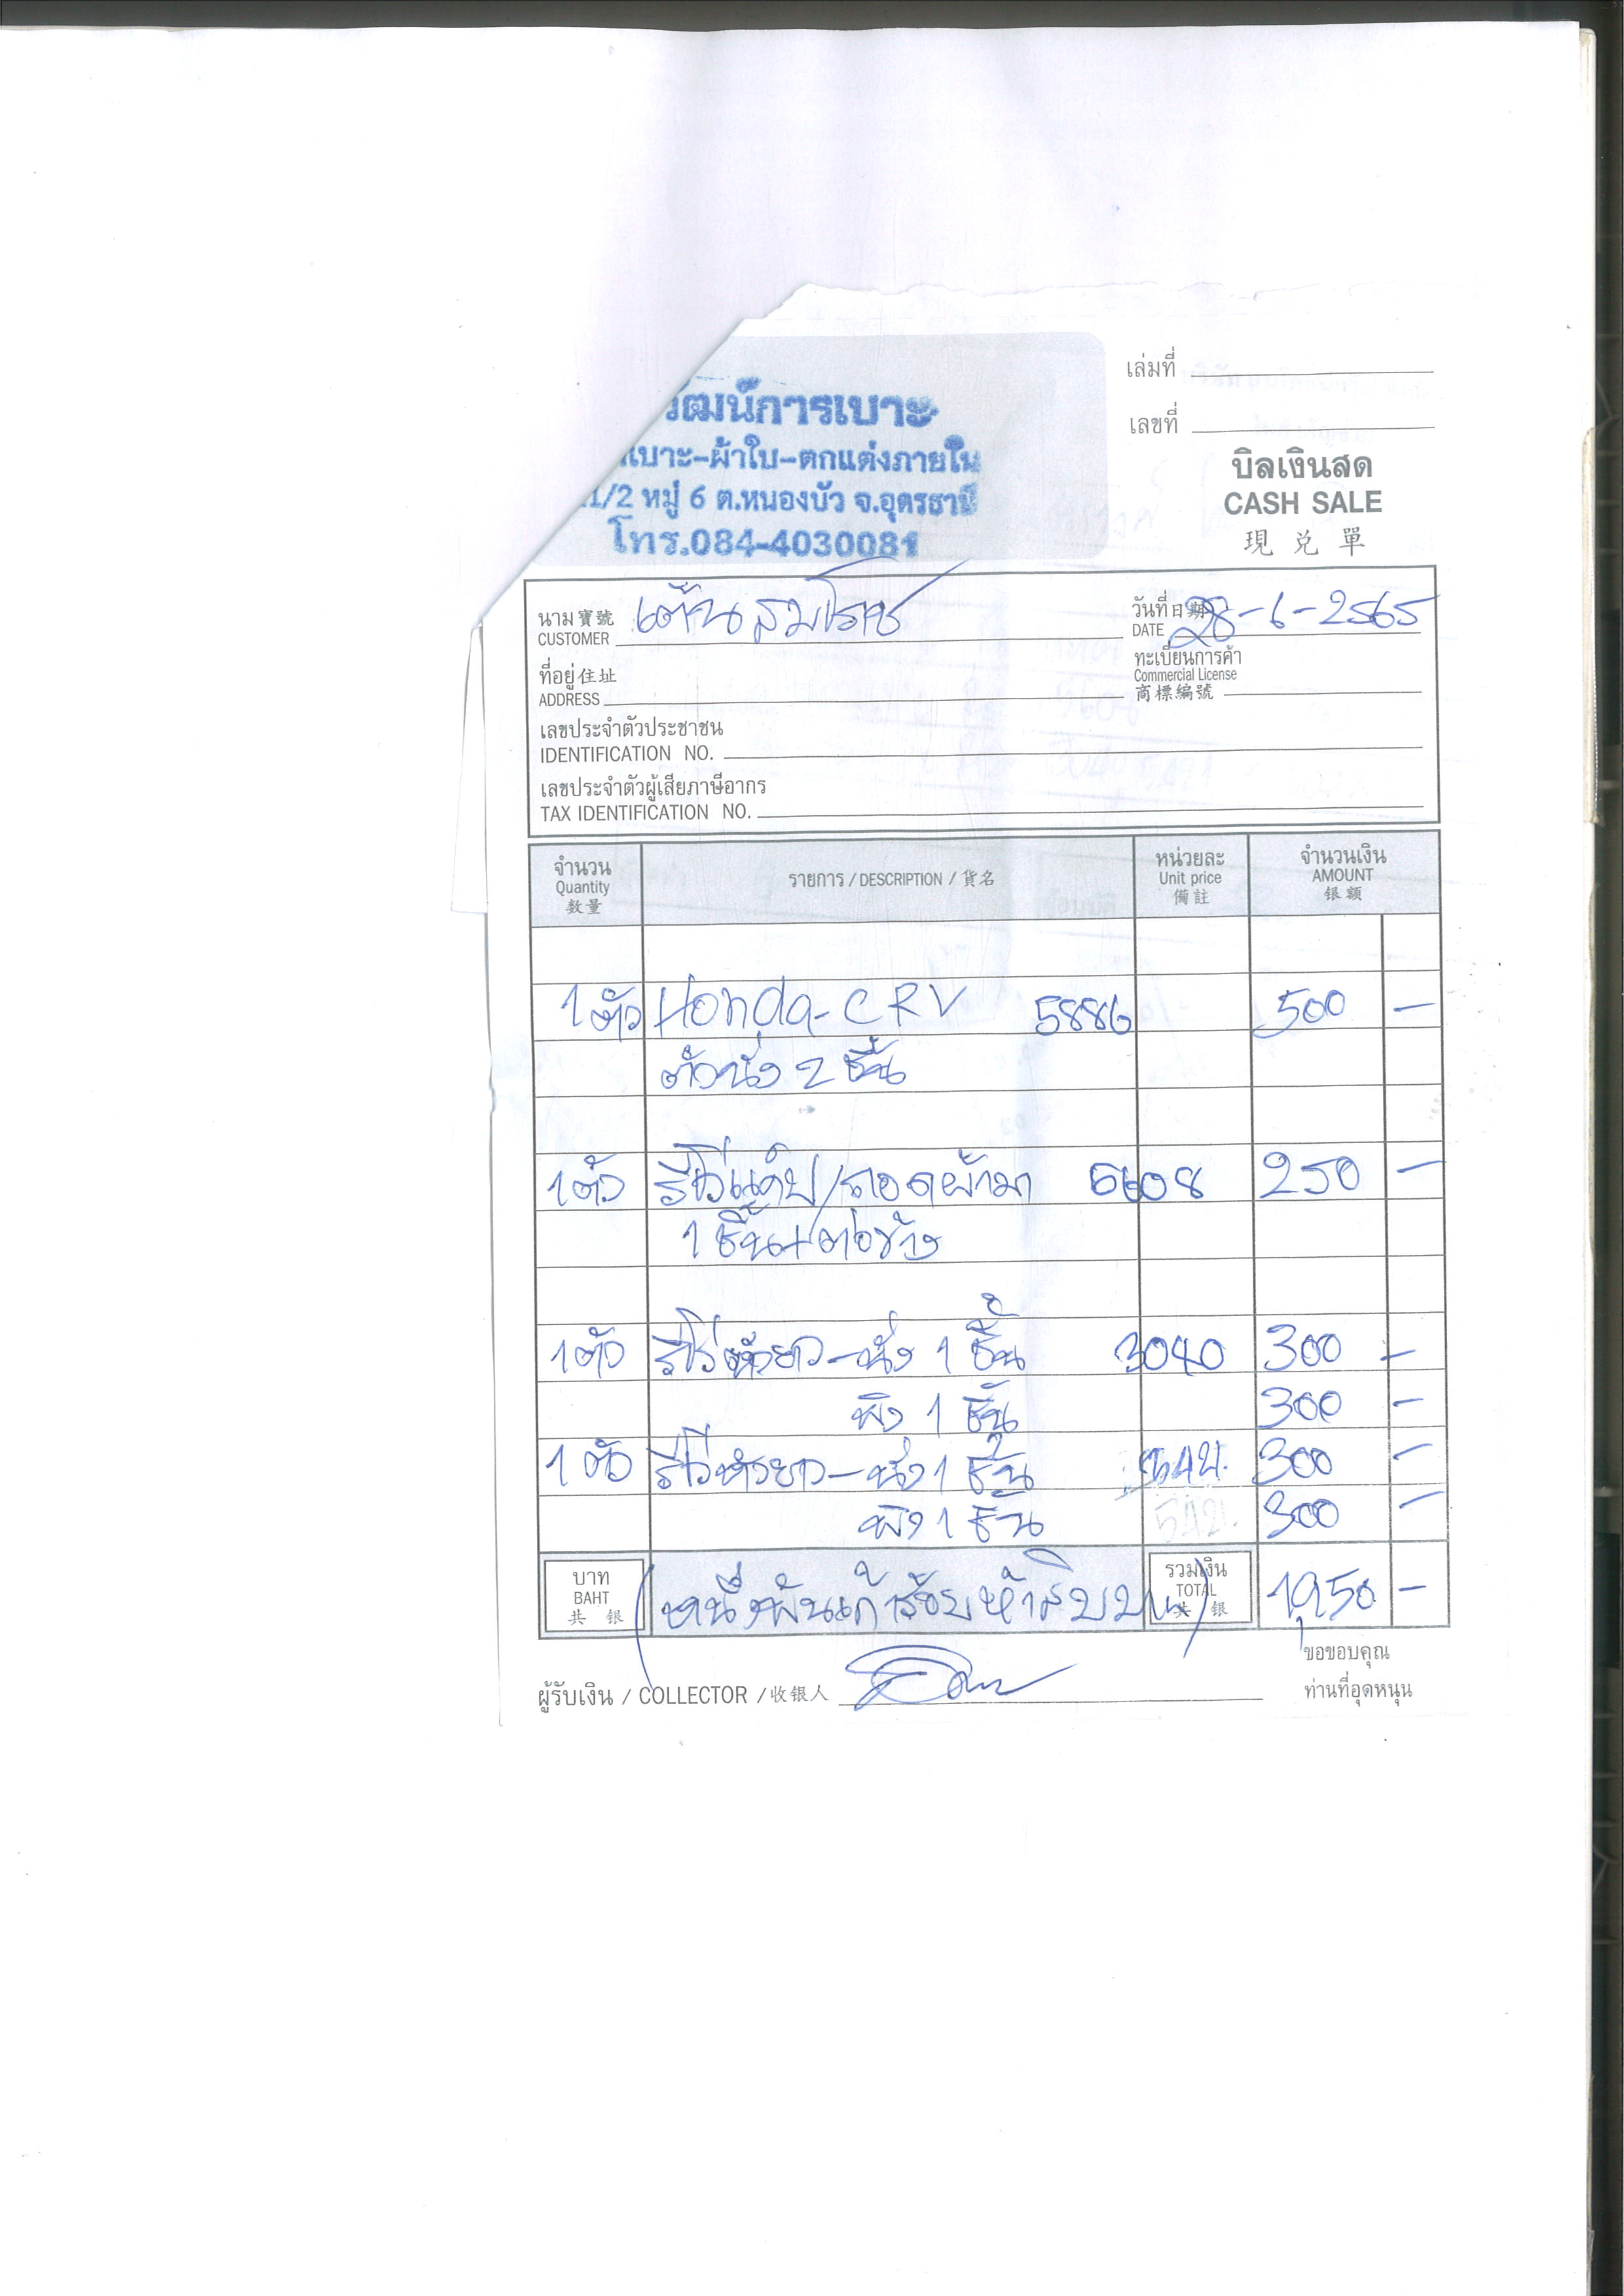 วัฒน์การเบาะ
เบาะ-ผ้าใบ-ตกแต่งภายใน
1/2 หมู่ 6 ต.หนองบัว จ.อุดรธานี
โทร.084-4030081
เล่มที่
เลขที่
บิลเงินสด
CASH SALE
現兑單
นาม寶號
CUSTOMER เต้นสมโรช
วันที่日期
DATE 28-6-2565
ที่อยู่住址
ADDRESS
ทะเบียนการค้า
Commercial License
商標編號
เลขประจำตัวประชาชน
IDENTIFICATION NO.
เลขประจำตัวผู้เสียภาษีอากร
TAX IDENTIFICATION NO.
จำนวน
Quantity
数量
รายการ / DESCRIPTION / 貨名
หน่วยละ
Unit price
備註
จำนวนเงิน
AMOUNT
银额
1 ตัว Honda-CRV 5886 500 —
ตัวนั่ง 2 ชิ้น
1 ตัว รีโว่แค็บ/ถอดผ้ามา 6608 250 —
1 ชิ้น+ต่อข้าง
1 ตัว รีโว่หัวยาว-นั่ง 1 ชิ้น 3040 300 —
พิง 1 ชิ้น 300 —
1 ตัว รีโว่หัวยาว-นั่ง 1 ชิ้น 300 —
พิง 1 ชิ้น 300 —
บาท
BAHT
共银
(หนึ่งพันเก้าร้อยห้าสิบบาท)
รวมเงิน
TOTAL
共银
1,950 —
ผู้รับเงิน / COLLECTOR / 收银人
ขอขอบคุณ
ท่านที่อุดหนุน